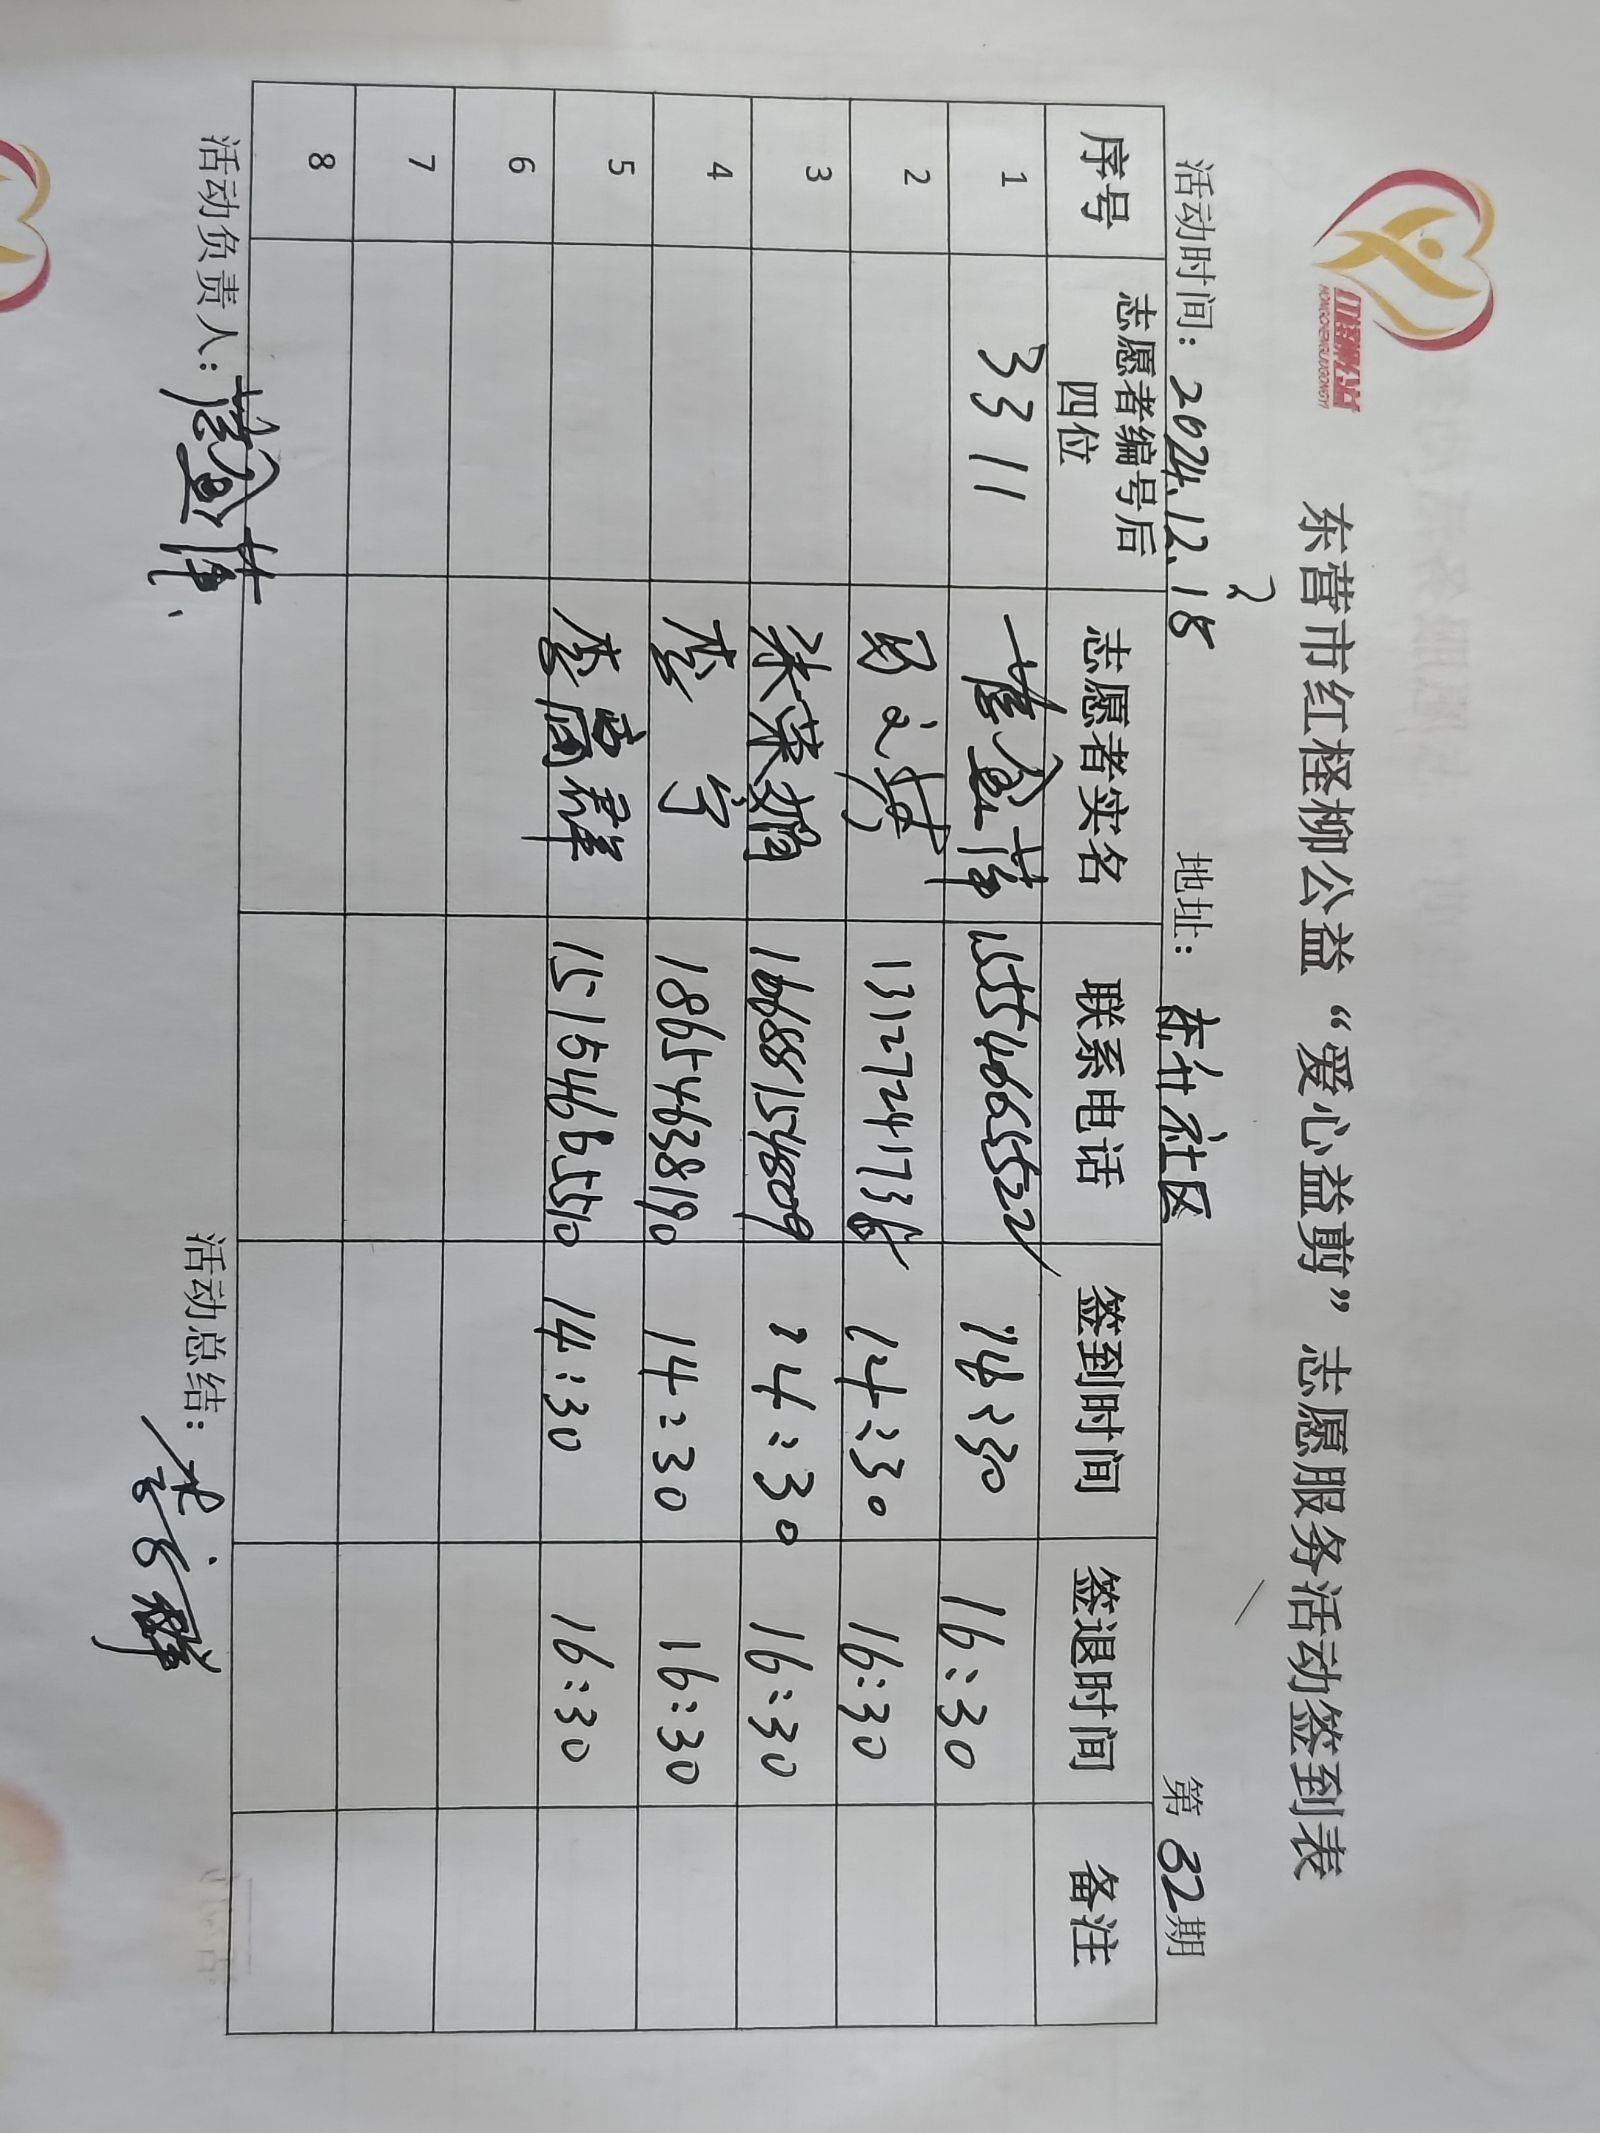 红柽柳公益
HONGCHENGLIUGONGYI
东营市红柽柳公益“爱心益剪”志愿服务活动签到表
活动时间：2024.12.18 地址：社区 第32期
序号 志愿者编号后四位 志愿者实名 联系电话 签到时间 签退时间 备注
1 3311 15554665522 14:30 16:30
2 14:30 16:30
3 荣娟 16688154809 14:30 16:30
4 李宁 18654638190 14:30 16:30
5 李丽群 15154665510 14:30 16:30
6
7
8
活动负责人： 活动总结：